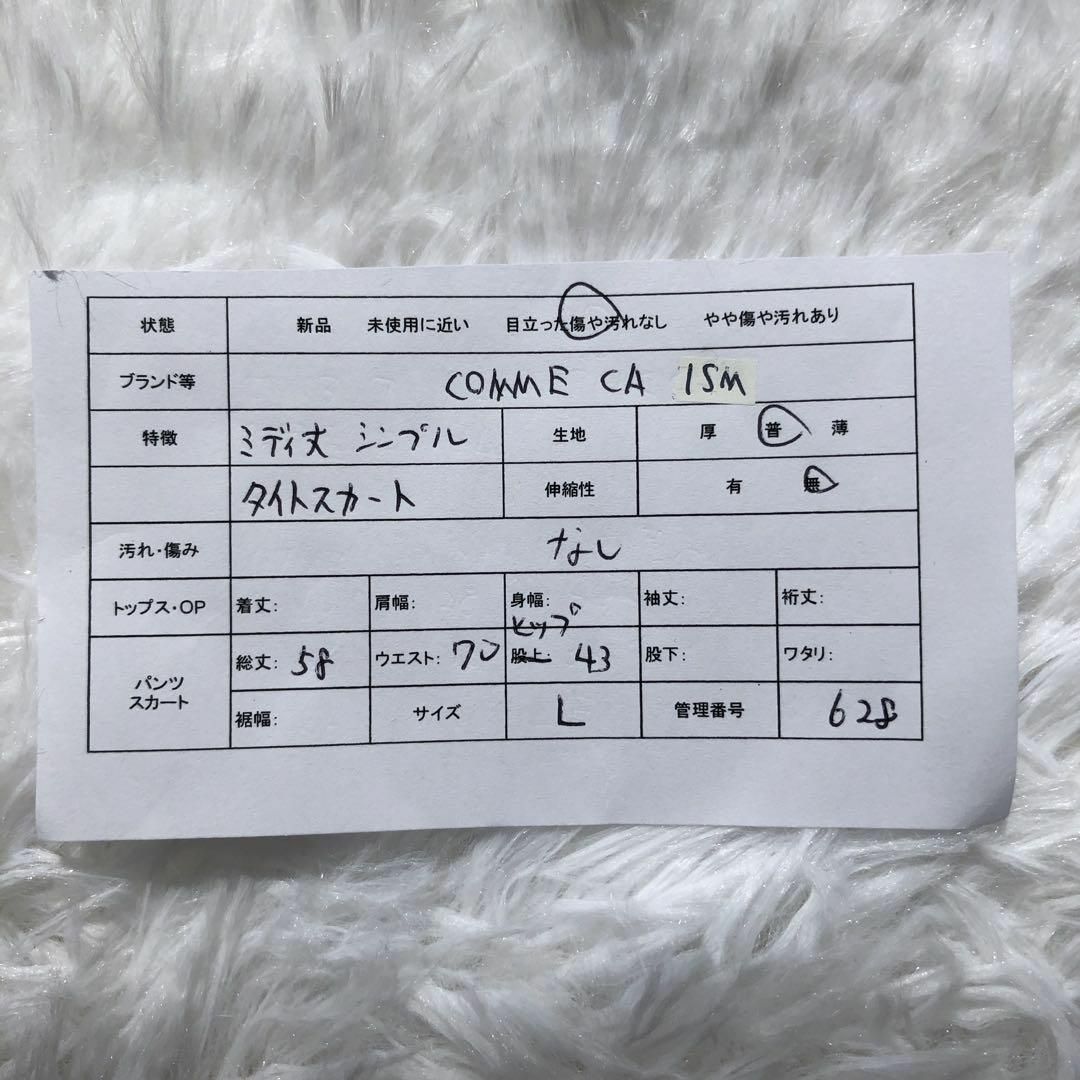 状態 新品 未使用に近い 目立った傷や汚れなし やや傷や汚れあり
ブランド等 COMME CA ISM
特徴 ミディ丈 シンプル 生地 厚 普 薄
タイトスカート 伸縮性 有 無
汚れ・傷み なし
トップス・OP 着丈: 肩幅: 身幅: 袖丈: 裄丈:
ヒップ
パンツ スカート 総丈: 58 ウエスト: 70 股上: 43 股下: ワタリ:
裾幅: サイズ L 管理番号 628